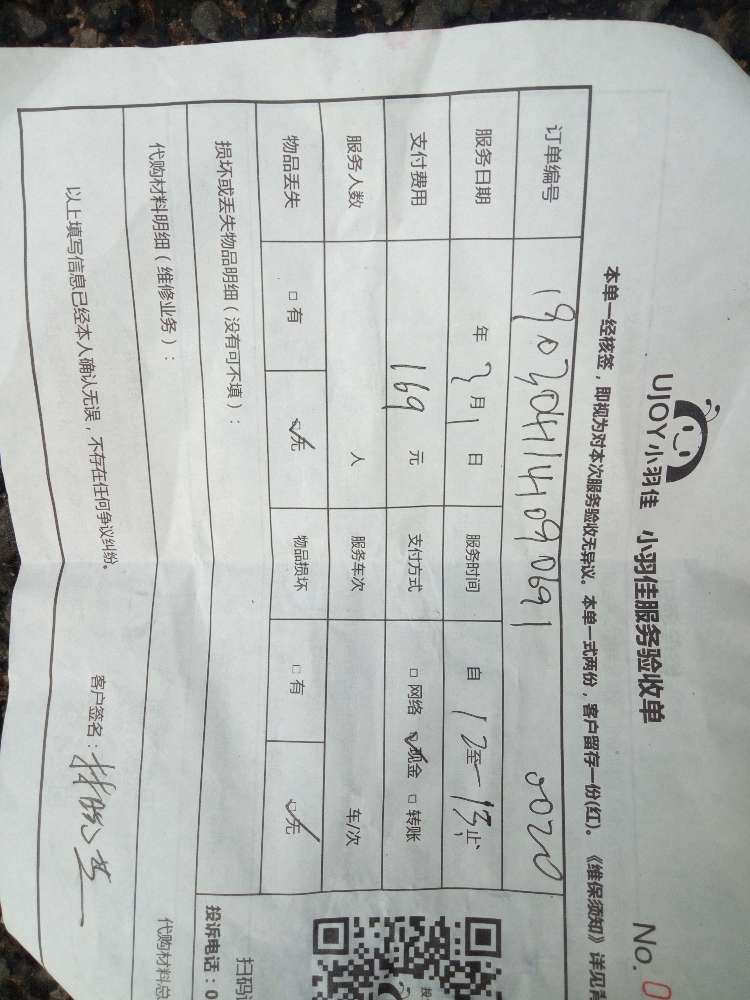 UJOY小羽佳 小羽佳服务验收单
No.0
本单一经核签，即视为对本次服务验收无异议。本单一式两份，客户留存一份(红)。《维保须知》详见背
订单编号 19030414090691 0020
服务日期 年 3月1日 服务时间 自12至13止
支付费用 169元 支付方式 □网络 ☑现金 □转账
服务人数 人 服务车次 车/次
物品丢失 □有 ☑无 物品损坏 □有 ☑无
损坏或丢失物品明细（没有可不填）：
代购材料明细（维修业务）：
代购材料总
以上填写信息已经本人确认无误，不存在任何争议纠纷。
客户签名：
扫码
投诉电话：0